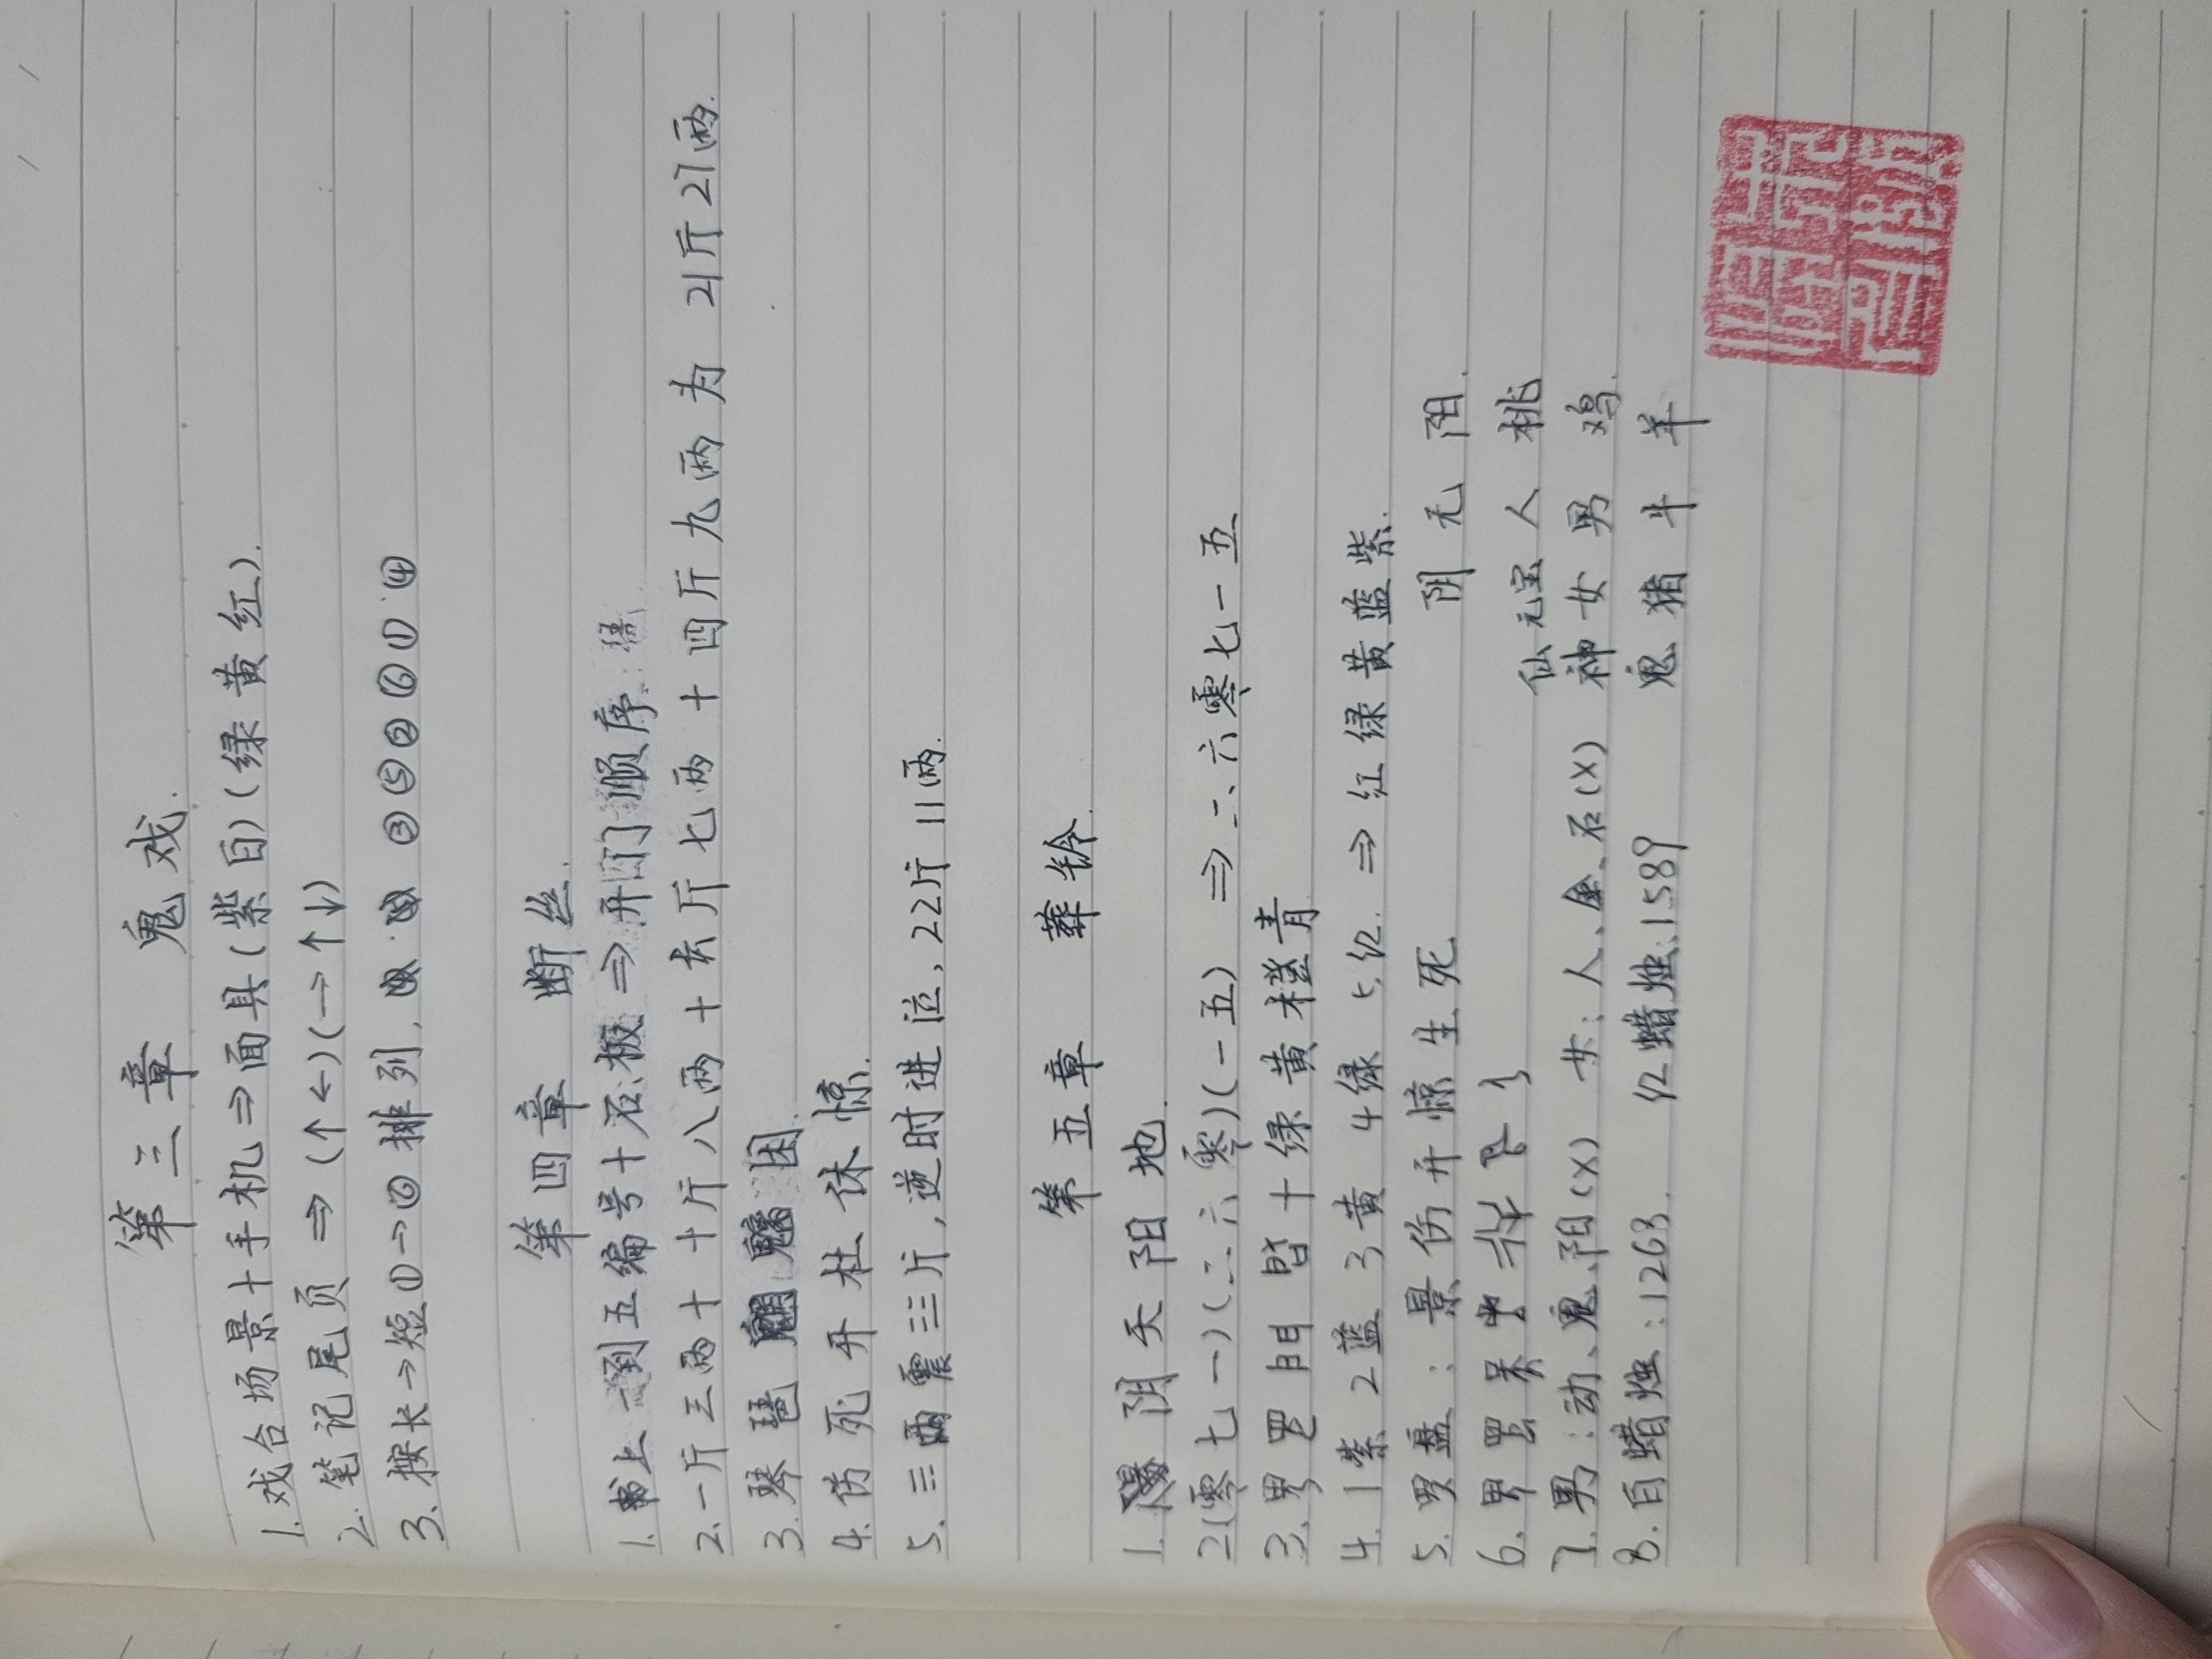 第三章 鬼戏.
1.戏台场景+手机⇒面具(紫白)(绿黄红).
2.笔记尾页⇒(↑←)(→↑↓)
3.按长→短①→⑥排列, ③⑤②⑥①④
第四章 断丝.
1.书上一到五编号+石板⇒开门顺序.
2.一斤三两+十斤八两+六斤七两+四斤九两为21斤27两.
3.琴琶 魑 困.
4.伤死开杜休惊.
5.三两 三斤,逆时进位,22斤11两.
第五章 葬铃.
1.阴天阳地.
2(零七一)(二六零)(一五)⇒二六零七一五
3. 十绿黄橙青
4.1紫2蓝3黄4绿5红.⇒红绿黄蓝紫.
5.罗盘:景伤开惊生死. 阴无阳.
6. 仙元宝人桃
7.男:动、鬼、阳(x) 女:人、金、石(x) 神女男鸡.
8.白蜡烛:1263. 红蜡烛:1589 鬼猪牛羊